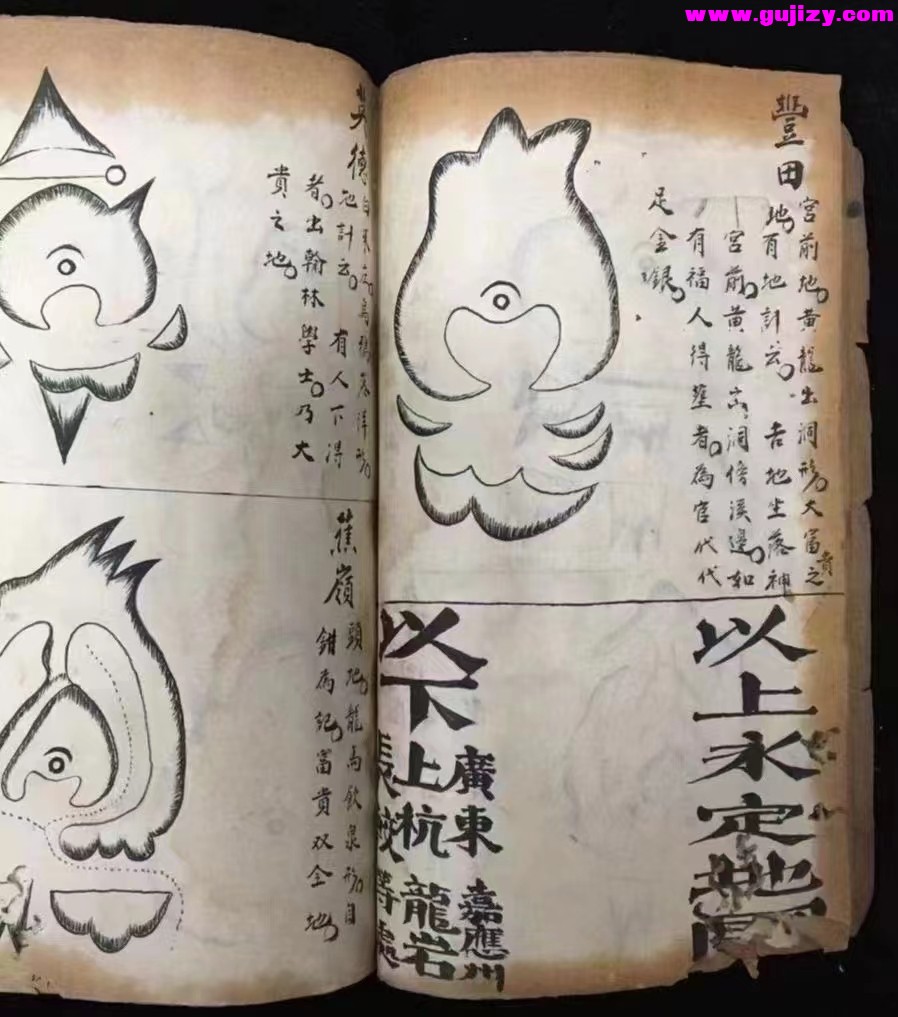 www.gujizy.com
豐田
宮前地黃龍出洞形大富貴之
地有地計云吉地坐落神
宮前黃龍出洞傍溪邊如
有福人得塟者為官代代
足金銀
以上永定地
以下
廣東嘉應州
上杭龍岩
等處
德
地計云有人下得
者出翰林學士乃大
貴之地
蕉嶺
頭地龍馬飲泉形自
鉗為記富貴双全地